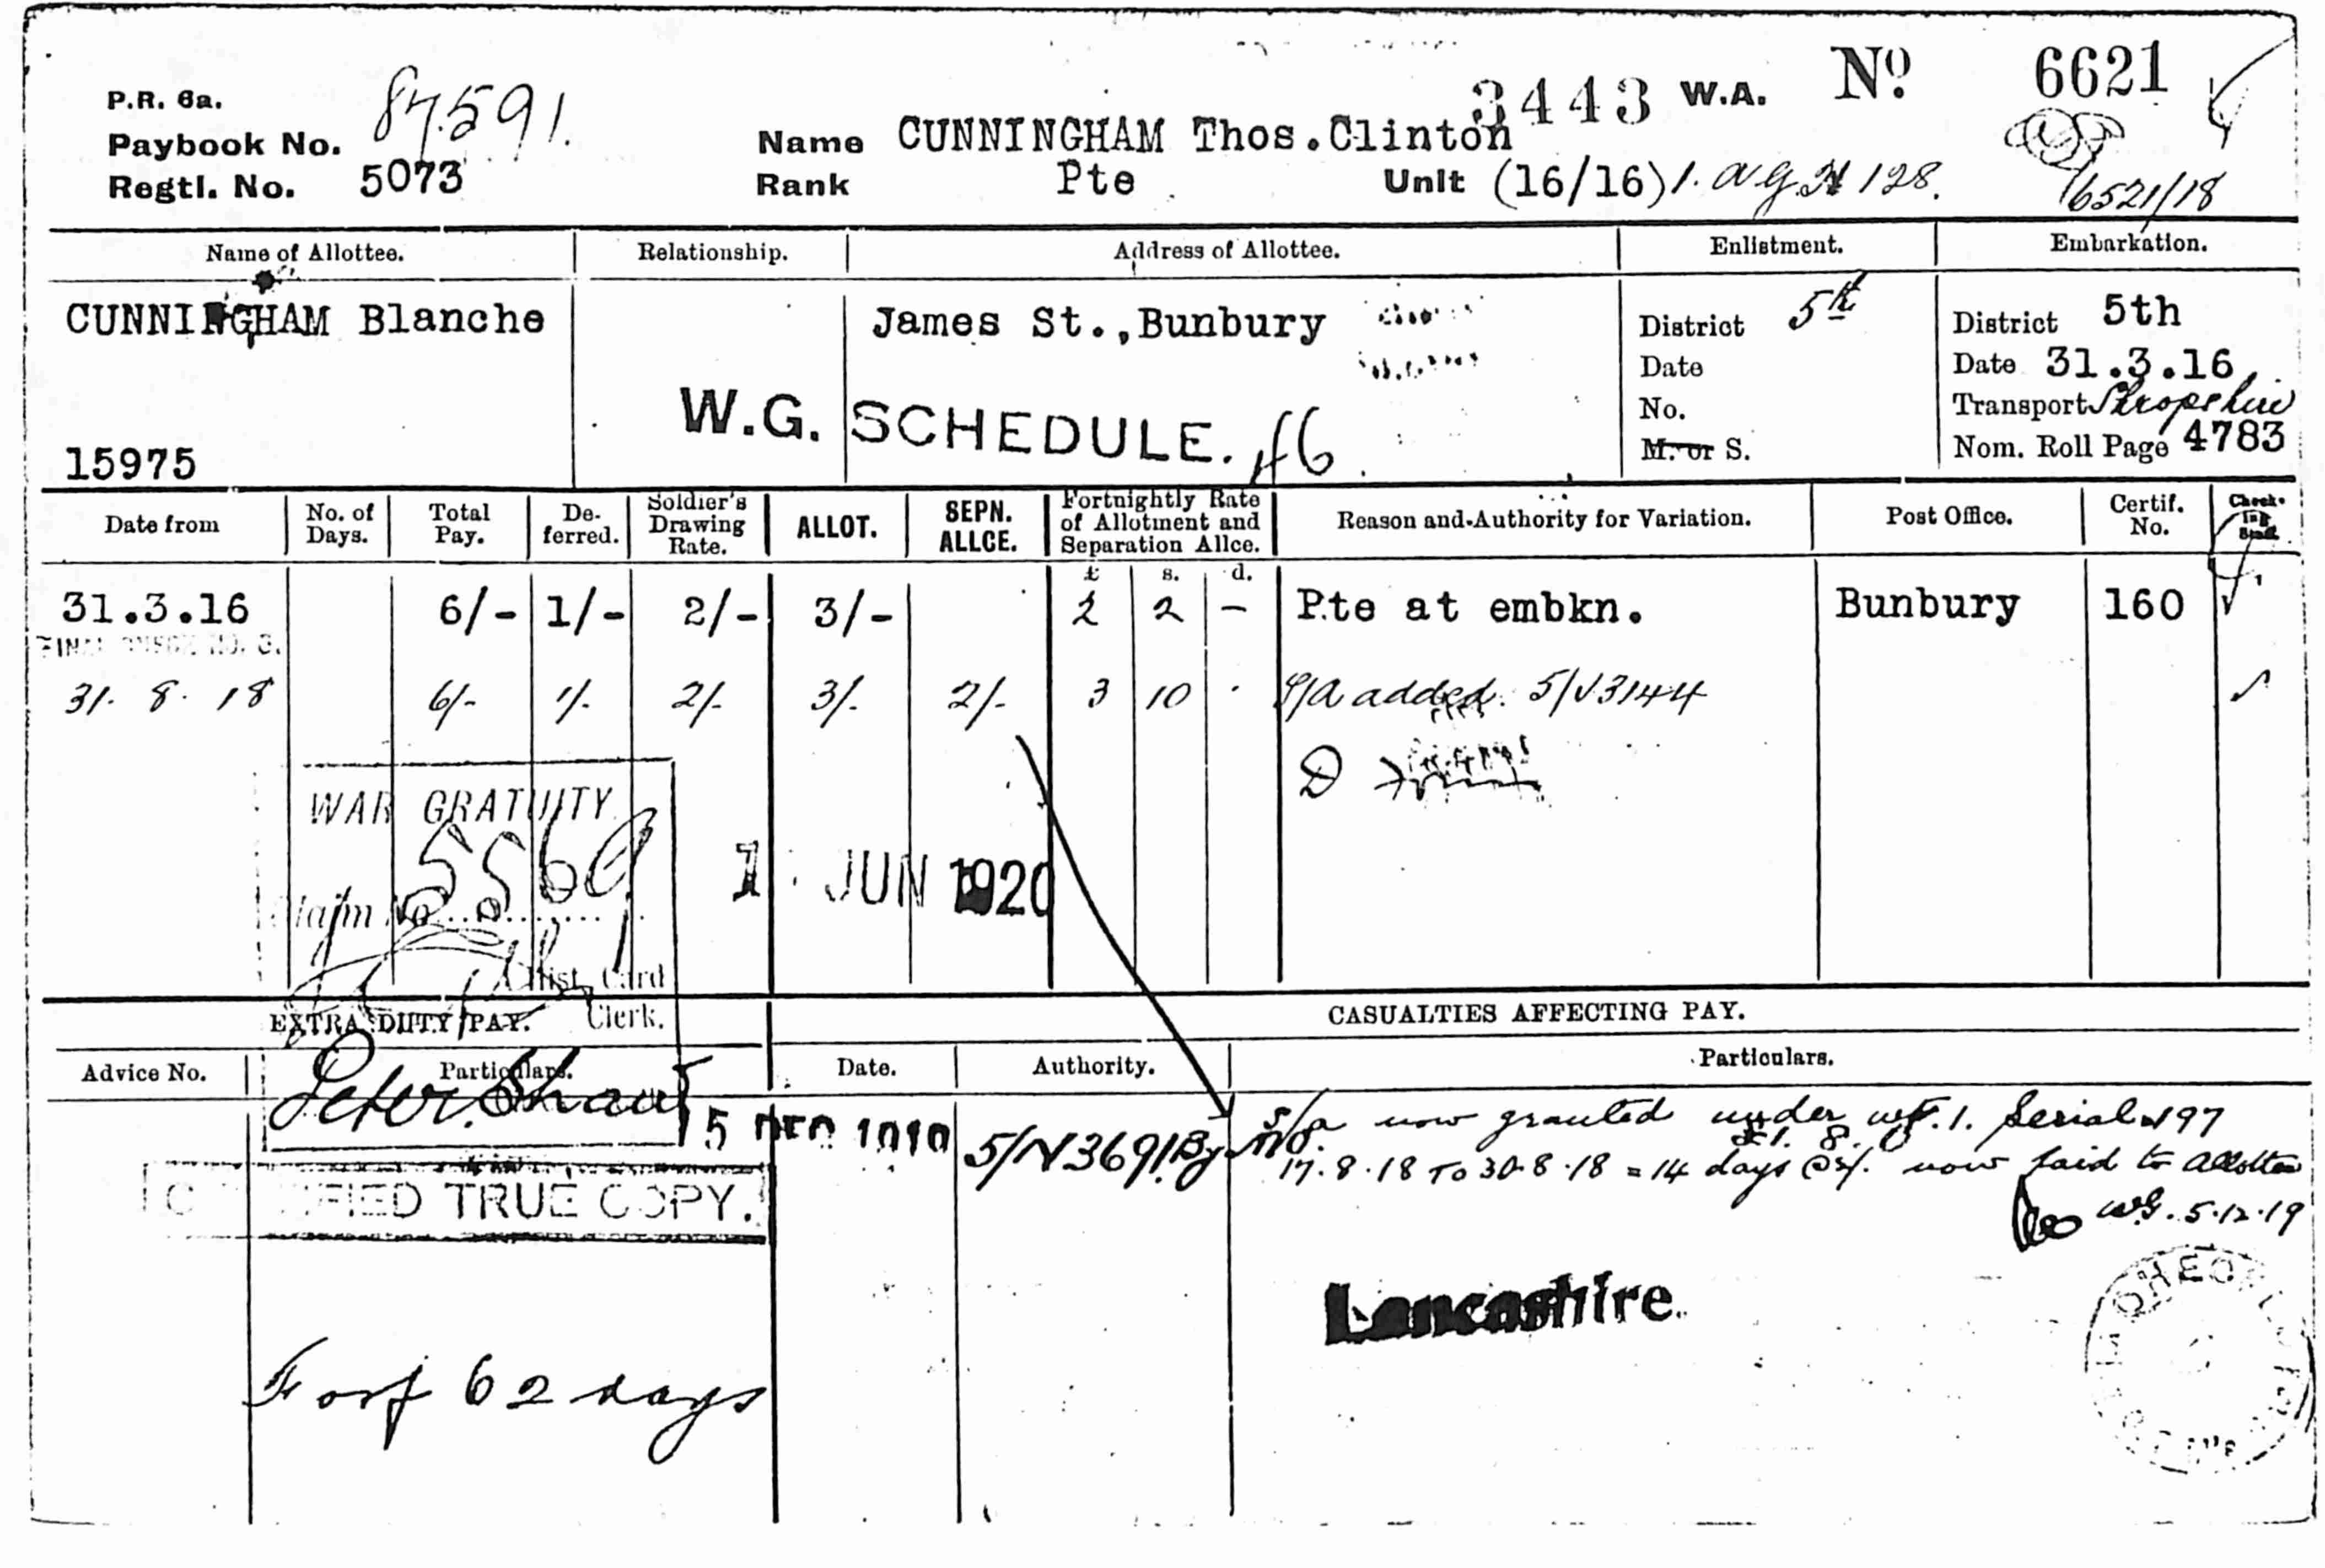 3443 W.A. No. 6621
P.R. 6a.
Paybook No. 87591.
Name CUNNINGHAM Thos.Clinton
Regtl. No. 5073
Rank Pte
Unit (16/16) 1. A.G.H 128.
6521/18
Name of Allottee. Relationship. Address of Allottee. Enlistment. Embarkation.
CUNNINGHAM Blanche James St.,Bunbury
District 5th
District 5th
Date
Date 31.3.16
No.
Transport Shropshire
M. or S.
Nom. Roll Page 4783
W.G. SCHEDULE.
15975
Date from No. of Days. Total Pay. De-ferred. Soldier's Drawing Rate. ALLOT. SEPN. ALLCE. Fortnightly Rate of Allotment and Separation Allce. Reason and Authority for Variation. Post Office. Certif. No. Check-ing Staff.
£ s. d.
31.3.16 6/- 1/- 2/- 3/- 2 2 - Pte at embkn. Bunbury 160
31. 8. 18 6/- 1/- 2/- 3/- 2/- 3 10 S/A added. 5/N3144
D
WAR GRATUITY
Claim No. 5569
1 JUN 1920
Hist. Card
Clerk.
EXTRA DUTY PAY. CASUALTIES AFFECTING PAY.
Advice No. Particulars. Date. Authority. Particulars.
Peter Shaw
5 DEC 1919 5/N3691 By M.O.
S/a now granted under W.F.1. Serial 197
£1. 8. 0
17.8.18 To 30.8.18 = 14 days @ 2/- now paid to allottee
W.G. 5.12.19
CERTIFIED TRUE COPY.
Lancashire
Forf 62 days